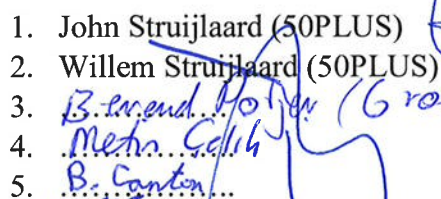 1. John Struijlaard (50PLUS)
2. Willem Struijlaard (50PLUS)
3. Berend
4. Metin Çelik
5. B. Canton